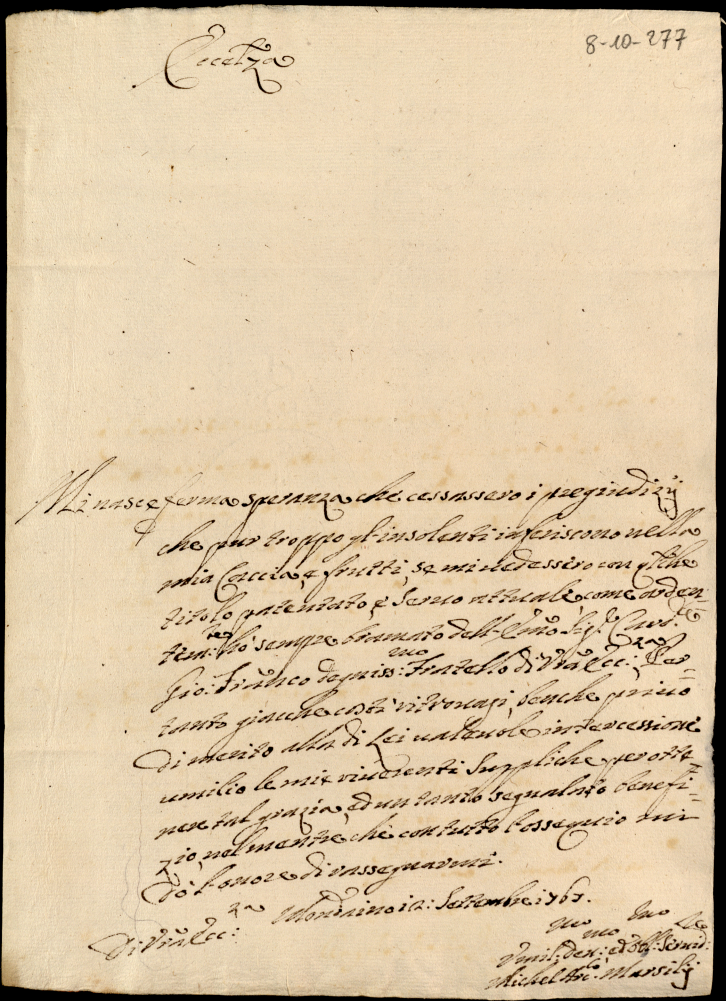 8-10-277
Eccelza
Mi nasce ferma speranza che cessassero i pregiudizij
che pur troppo gl'insolenti inferiscono nella
mia Caccia, e frutti, se mi vedessero con qlche
titolo patentato, e servo attuale, come arden-
tem:te hò sempre bramato dell' Emo Sig.r Card.le
Gio: Franco degniss:mo Fratello di Vra Ecc:za Per-
tanto giacche costì ritrovasi, benche privo
di merito alla di Lei valevole intercessione
umilio le mie riverenti suppliche per otte-
nere tal grazia, ed un tanto segnalato benefi-
zio, nel mentre che con tutto l'ossequio mi
dò l'onore di rassegnarmi.
Di Vra Ecc:za
Mondaino 12: Settembre 1767.
Umil:mo Dev:mo ed Obb:mo Servid:re
Michel Marsilij